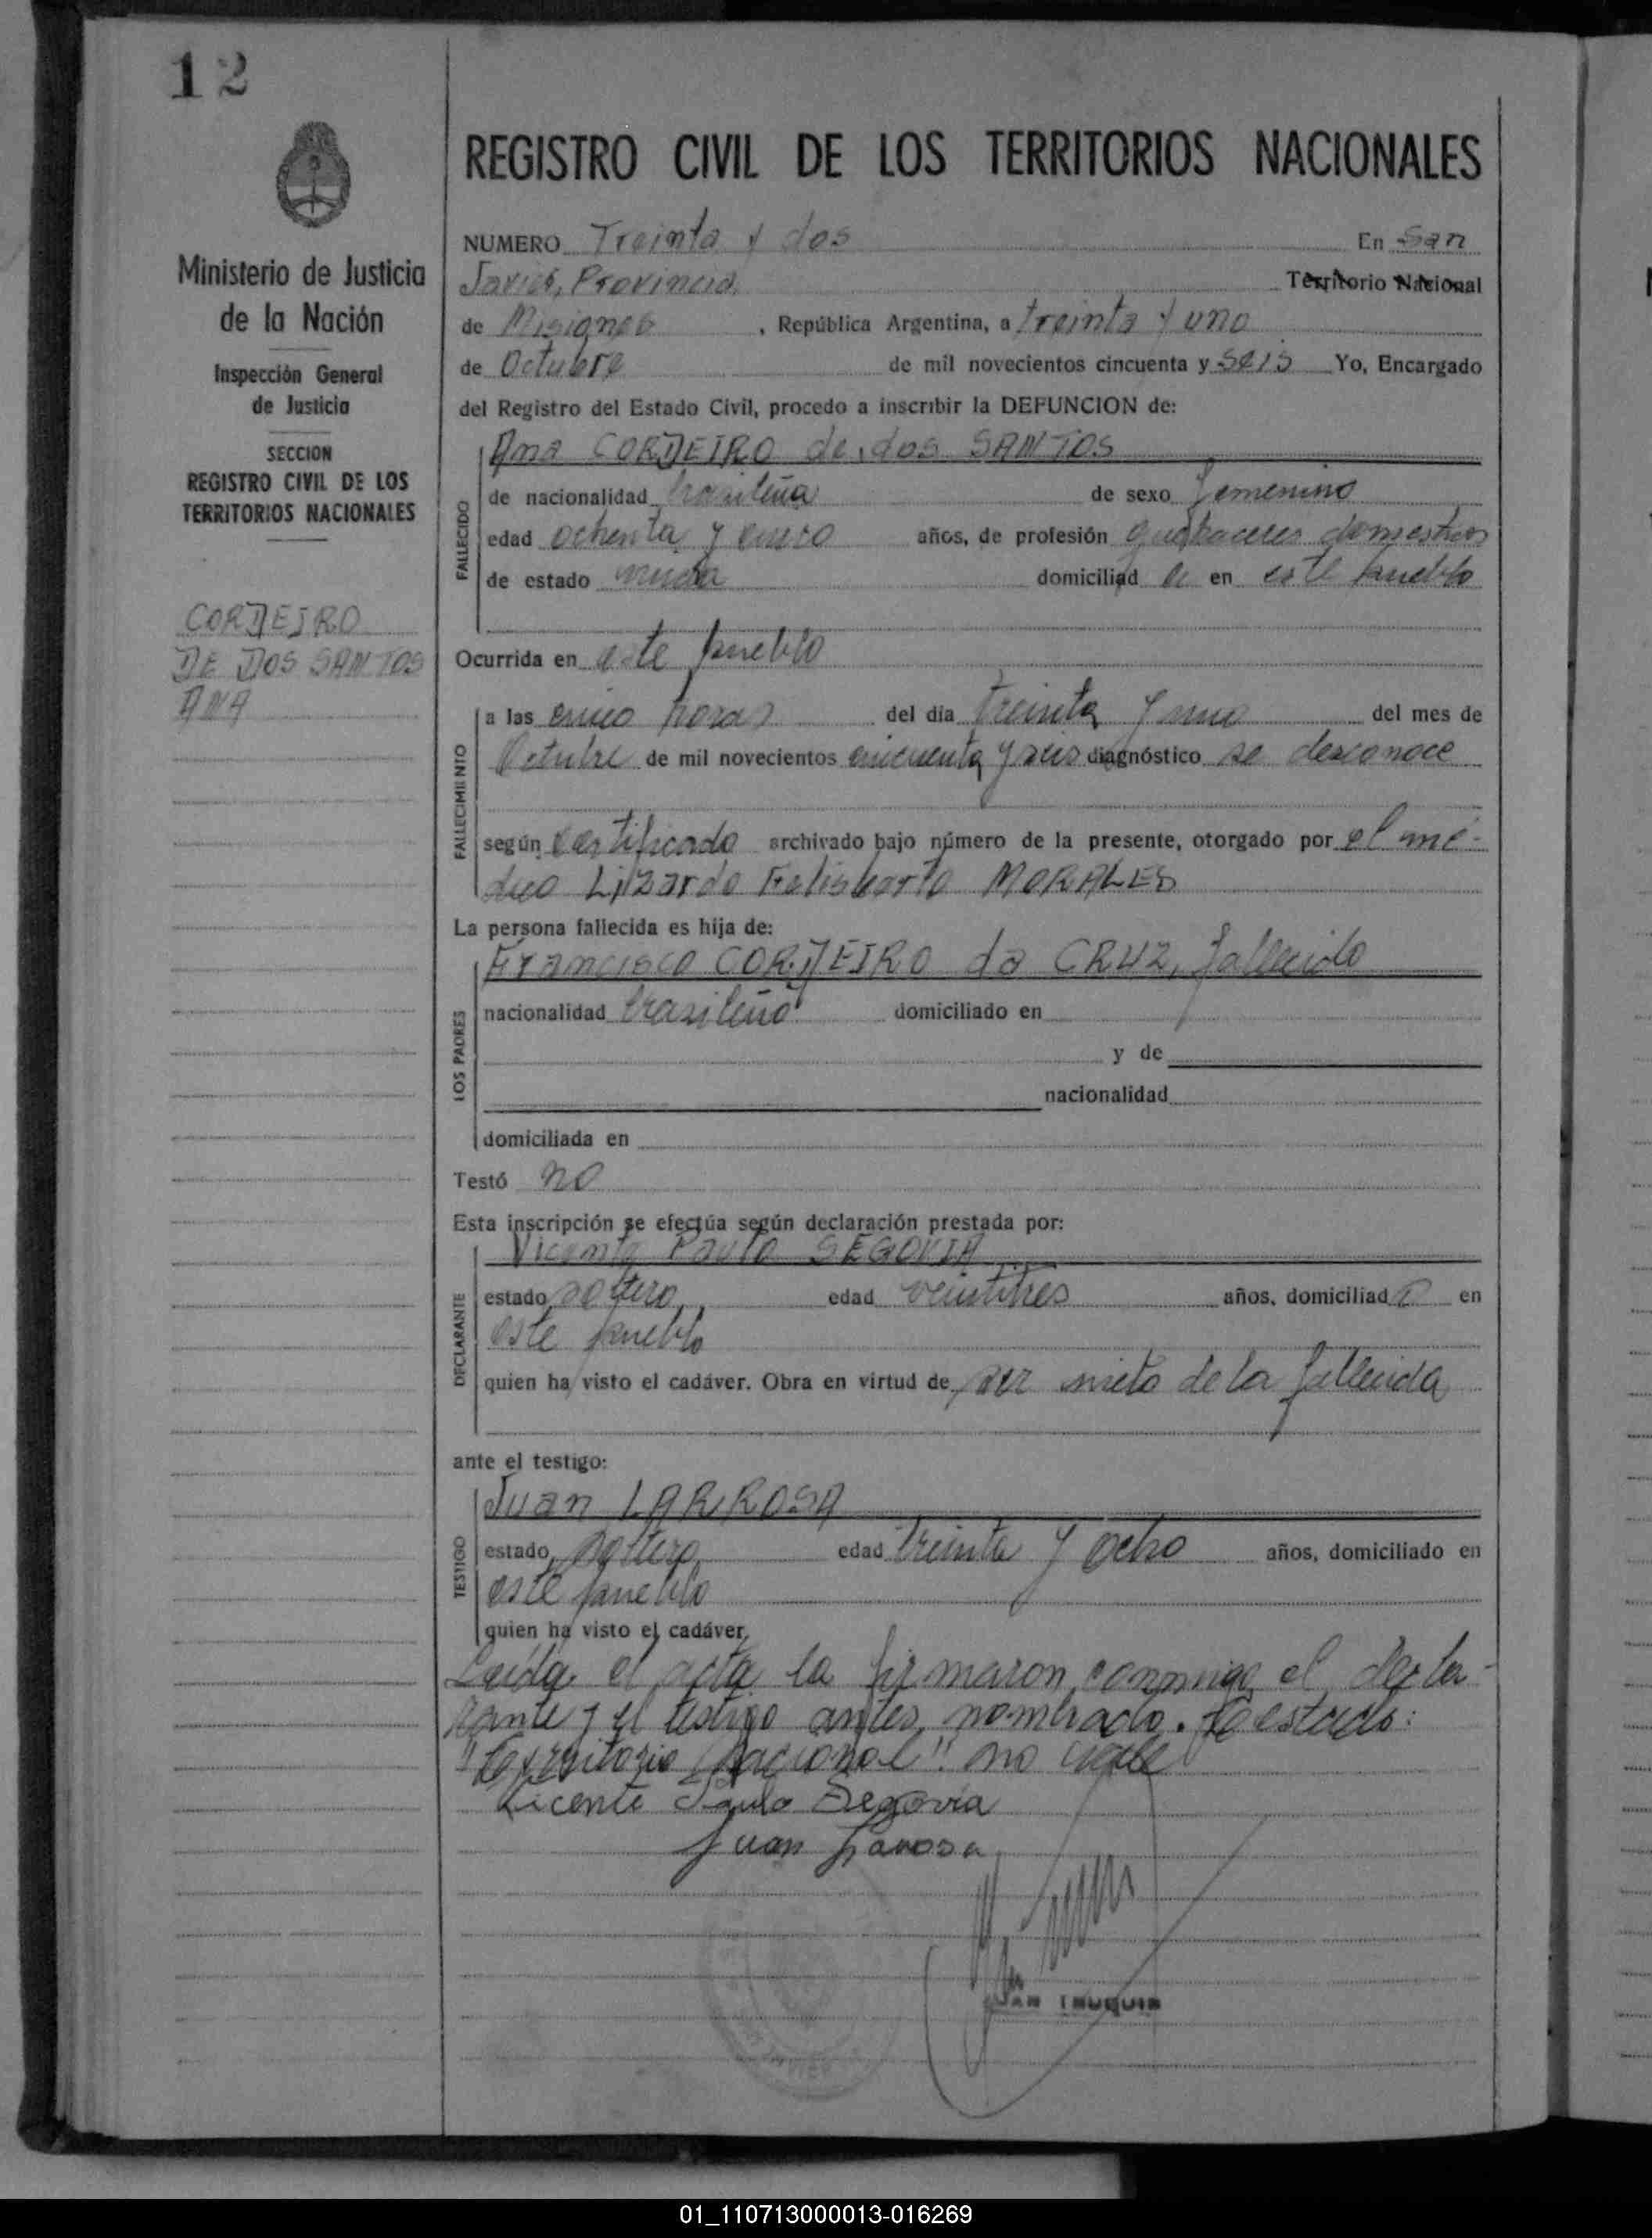 12
REGISTRO CIVIL DE LOS TERRITORIOS NACIONALES
Ministerio de Justicia
de la Nación
Inspección General
de Justicia
SECCION
REGISTRO CIVIL DE LOS
TERRITORIOS NACIONALES
CORDEIRO
DE DOS SANTOS
ANA
NUMERO Treinta y dos En San
Javier, Provincia Territorio Nacional
de Misiones, República Argentina, a treinta y uno
de Octubre de mil novecientos cincuenta y seis Yo, Encargado
del Registro del Estado Civil, procedo a inscribir la DEFUNCION de:
FALLECIDO
Ana CORDEIRO de dos SANTOS
de nacionalidad brasileña de sexo femenino
edad ochenta y cinco años, de profesión quehaceres domesticos
de estado viuda domiciliad a en este pueblo
Ocurrida en este pueblo
FALLECIMIENTO
a las cinco horas del día treinta y uno del mes de
Octubre de mil novecientos cincuenta y seis diagnóstico se desconoce
según certificado archivado bajo número de la presente, otorgado por el mé-
dico Lizardo Felisberto MORALES
La persona fallecida es hija de:
LOS PADRES
Francisco CORDEIRO da CRUZ, fallecido
nacionalidad brasileño domiciliado en
y de
nacionalidad
domiciliada en
Testó no
Esta inscripción se efectúa según declaración prestada por:
DECLARANTE
Vicente Paulo SEGOVIA
estado soltero, edad veintitres años, domiciliad o en
este pueblo
quien ha visto el cadáver. Obra en virtud de ser nieto de la fallecida
ante el testigo:
TESTIGO
Juan LARROSA
estado soltero, edad treinta y ocho años, domiciliado en
este pueblo
quien ha visto el cadáver,
Leida el acta la firmaron conmigo el decla-
rante y el testigo antes nombrado. Testado:
"Territorio Nacional": no vale
Vicente Paulo Segovia
Juan Larrosa
JUAN
01_110713000013-016269